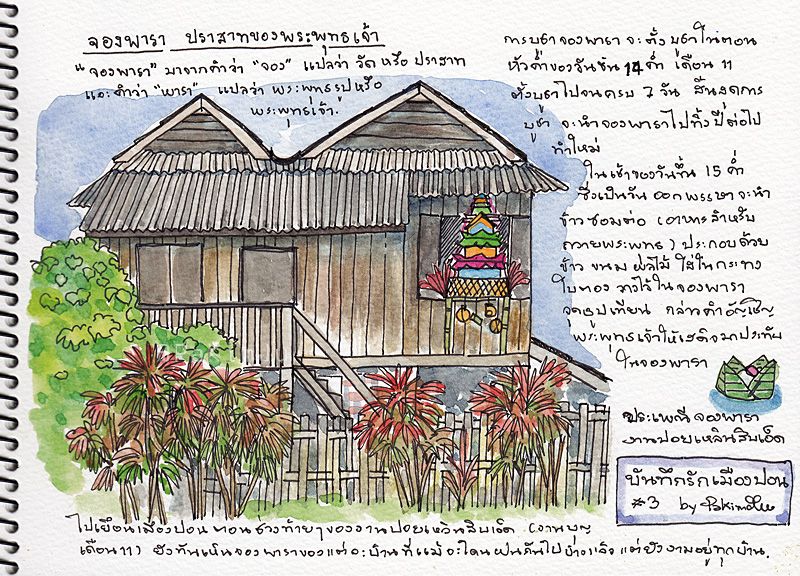 จองพารา ปราสาทของพระพุทธเจ้า
"จองพารา" มาจากคำว่า "จอง" แปลว่า วัด หรือ ปราสาท
และคำว่า "พารา" แปลว่า พระพุทธรูปหรือ
พระพุทธเจ้า.
การบูชาจองพารา จะตั้งบูชาในตอน
หัวค่ำของวันขึ้น 14 ค่ำ เดือน 11
ตั้งบูชาไปจนครบ 7 วัน สิ้นสุดการ
บูชา จะนำจองพาราไปทิ้ง ปีต่อไป
ทำใหม่
ในเช้าของวันขึ้น 15 ค่ำ
ซึ่งเป็นวันออกพรรษา จะนำ
ข้าวซอมต่อ (อาหารสำหรับ
ถวายพระพุทธ) ประกอบด้วย
ข้าว ขนม ผลไม้ ใส่ในกระทง
ใบตอง วางไว้ในจองพารา
จุดธูปเทียน กล่าวคำอัญเชิญ
พระพุทธเจ้าให้เสด็จมาประทับ
ในจองพารา
ประเพณีจองพารา
งานปอยเหลินสิบเอ็ด
บันทึกรักเมืองปอน
#3 by
ไปเยือนเมืองปอนตอนช่วงท้ายๆของงานปอยเหลินสิบเอ็ด (งานบุญ
เดือน 11) ยังทันเห็นจองพาราของแต่ละบ้านที่แม้จะโดนฝนกันไปบ้างแล้ว แต่ยังงามอยู่ทุกบ้าน.